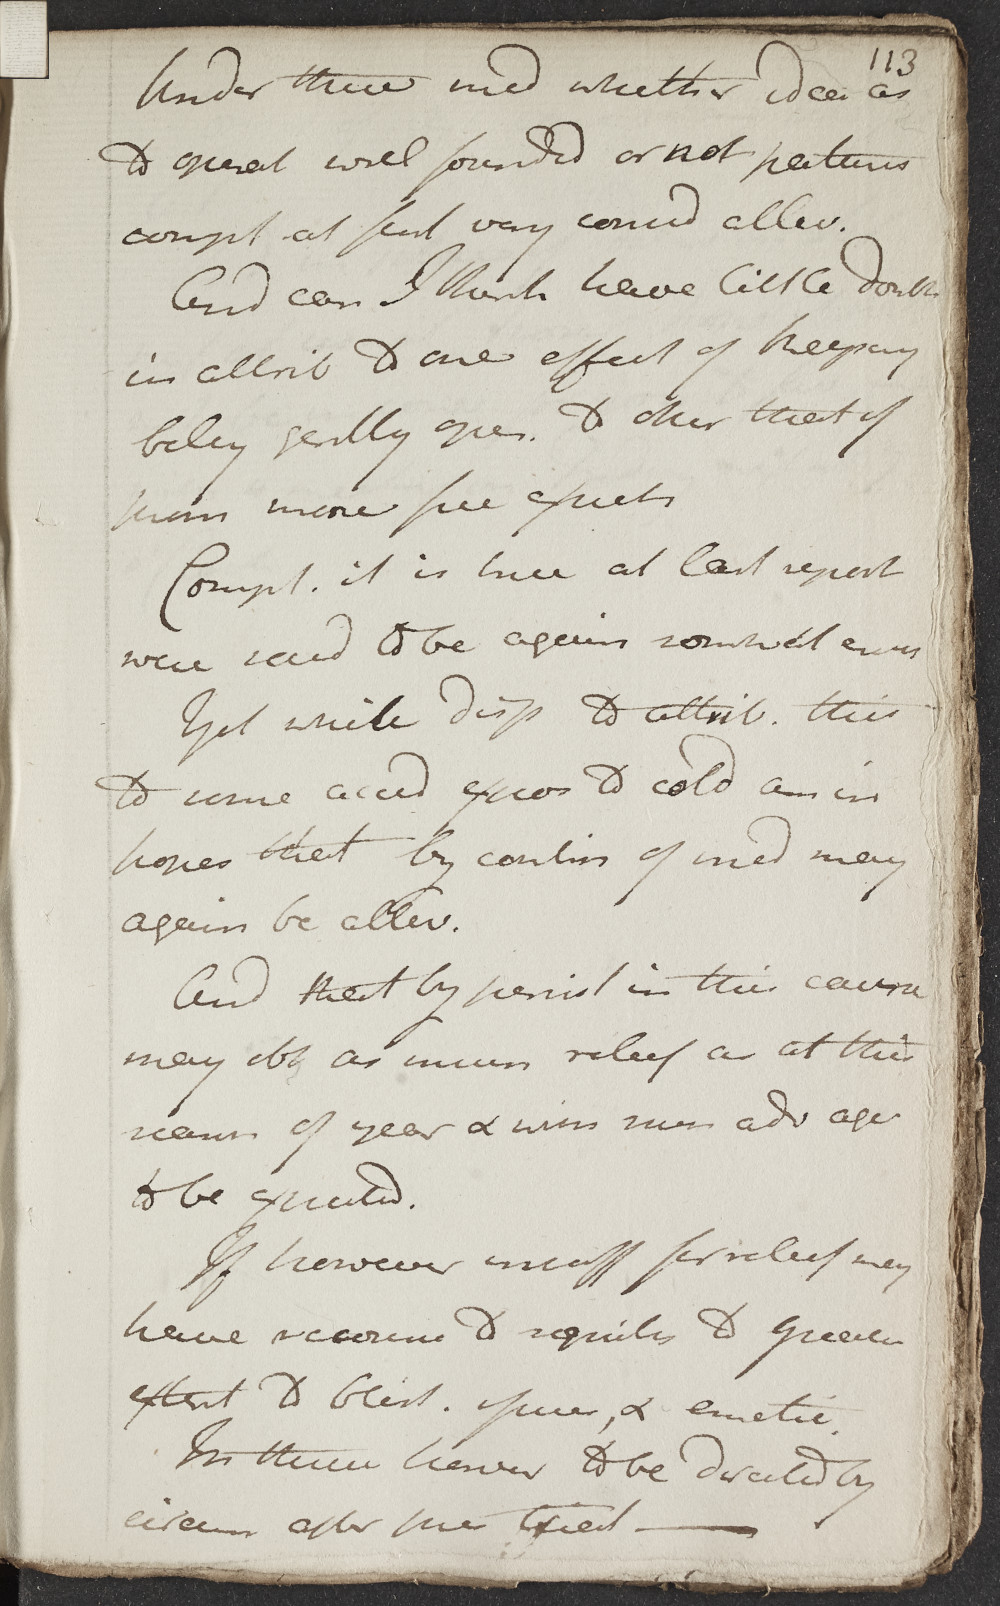 113
Under these med whether idea as
to operat well founded or not patients
compt at first very consid allev.
And can I think have little doubt
in attrib to one effect of keeping
belly gently open. to other that of
more free expect
Compt. it is true at last report
were said to be again somwhat
Yet while disp to attrib. this
to some accid expos to cold am in
hopes that by contin of med may
again be allev.
And that by persist in this course
may obt as much relief as at this
season of year & age
to be expected.
If however insuff for relief may
have recourse to squills to greater
extent to blist. & emetic.
In these howev to be directed by
circum after these tried